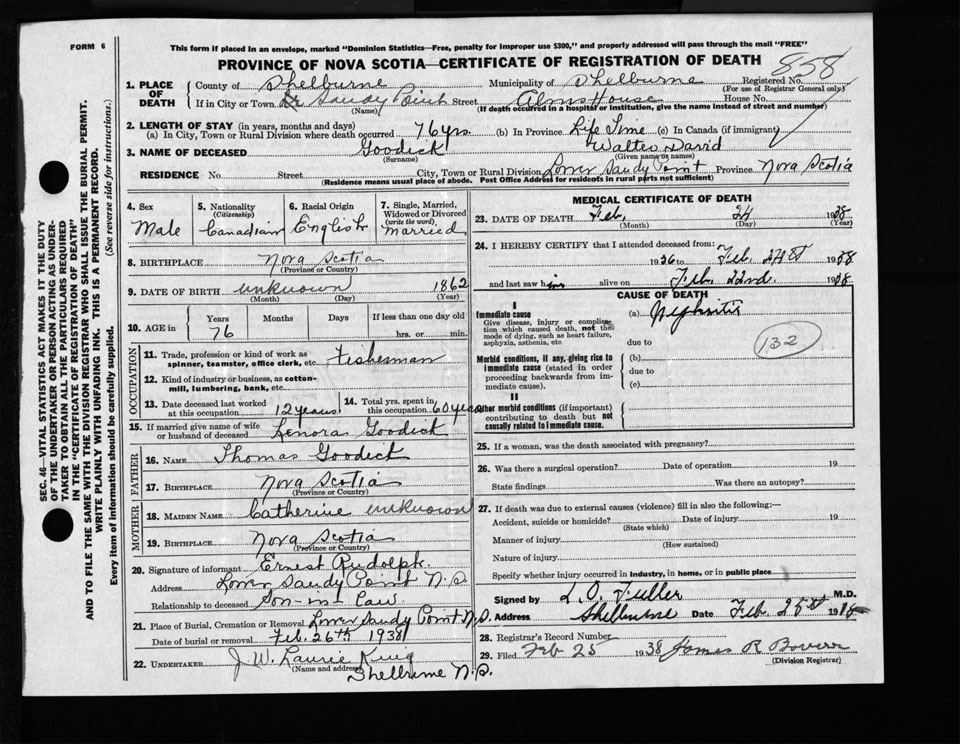 FORM 6
This form if placed in an envelope, marked "Dominion Statistics—Free, penalty for improper use $300," and properly addressed will pass through the mail "FREE"
PROVINCE OF NOVA SCOTIA—CERTIFICATE OF REGISTRATION OF DEATH
858
1. PLACE OF DEATH County of Shelburne Municipality of Shelburne Registered No.
(For use of Registrar General only)
If in City or Town Sandy Point Street Alms House House No.
(Name) (If death occurred in a hospital or institution, give the name instead of street and number)
2. LENGTH OF STAY (in years, months and days)
(a) In City, Town or Rural Division where death occurred 76 yrs. (b) In Province Life Time (c) In Canada (if immigrant)
3. NAME OF DECEASED Goodick Walter David
(Surname) (Given name or names)
RESIDENCE No. Street City, Town or Rural Division Lower Sandy Point Province Nova Scotia
(Residence means usual place of abode. Post Office Address for residents in rural parts not sufficient)
4. Sex Male
5. Nationality (Citizenship) Canadian
6. Racial Origin English
7. Single, Married, Widowed or Divorced (write the word) Married
8. BIRTHPLACE Nova Scotia
(Province or Country)
9. DATE OF BIRTH unknown 1862
(Month) (Day) (Year)
10. AGE in Years Months Days If less than one day old
76 hrs. or min.
OCCUPATION
11. Trade, profession or kind of work as spinner, teamster, office clerk, etc. Fisherman
12. Kind of industry or business, as cotton-mill, lumbering, bank, etc.
13. Date deceased last worked at this occupation 12 years
14. Total yrs. spent in this occupation 60 years
15. If married give name of wife or husband of deceased Lenora Goodick
FATHER
16. NAME Thomas Goodick
17. BIRTHPLACE Nova Scotia
(Province or Country)
MOTHER
18. MAIDEN NAME Catherine unknown
19. BIRTHPLACE Nova Scotia
(Province or Country)
20. Signature of informant Ernest Rudolph
Address Lower Sandy Point N.S.
Relationship to deceased Son-in Law
21. Place of Burial, Cremation or Removal Lower Sandy Point N.S.
Date of burial or removal Feb. 26th 1938
22. UNDERTAKER J. W. Laurie King
(Name and address)
Shelburne N.S.
MEDICAL CERTIFICATE OF DEATH
23. DATE OF DEATH Feb. 24 1938
(Month) (Day) (Year)
24. I HEREBY CERTIFY that I attended deceased from:
1936 to Feb. 24st 1938
and last saw him alive on Feb. 22rd. 1938
CAUSE OF DEATH
I
Immediate cause
Give disease, injury or complication which caused death, not the mode of dying, such as heart failure, asphyxia, asthenia, etc.
(a) Nephritis
due to
132
Morbid conditions, if any, giving rise to immediate cause (stated in order proceeding backwards from immediate cause).
(b)
due to
(c)
II
Other morbid conditions (if important) contributing to death but not causally related to immediate cause.
25. If a woman, was the death associated with pregnancy?
26. Was there a surgical operation? Date of operation 19
State findings Was there an autopsy?
27. If death was due to external causes (violence) fill in also the following:—
Accident, suicide or homicide? Date of injury 19
(State which)
Manner of injury
(How sustained)
Nature of injury
Specify whether injury occurred in industry, in home, or in public place
Signed by L. O. Fuller M.D.
Address Shelburne Date Feb. 25st 1938
28. Registrar's Record Number
29. Filed Feb 25 1938 James R Bower
(Division Registrar)
SEC. 46—VITAL STATISTICS ACT MAKES IT THE DUTY
OF THE UNDERTAKER OR PERSON ACTING AS UNDER-
TAKER TO OBTAIN ALL THE PARTICULARS REQUIRED
IN THE "CERTIFICATE OF REGISTRATION OF DEATH"
AND TO FILE THE SAME WITH THE DIVISION REGISTRAR WHO SHALL ISSUE THE BURIAL PERMIT.
WRITE PLAINLY WITH UNFADING INK. THIS IS A PERMANENT RECORD.
Every item of information should be carefully supplied. (See reverse side for instructions.)